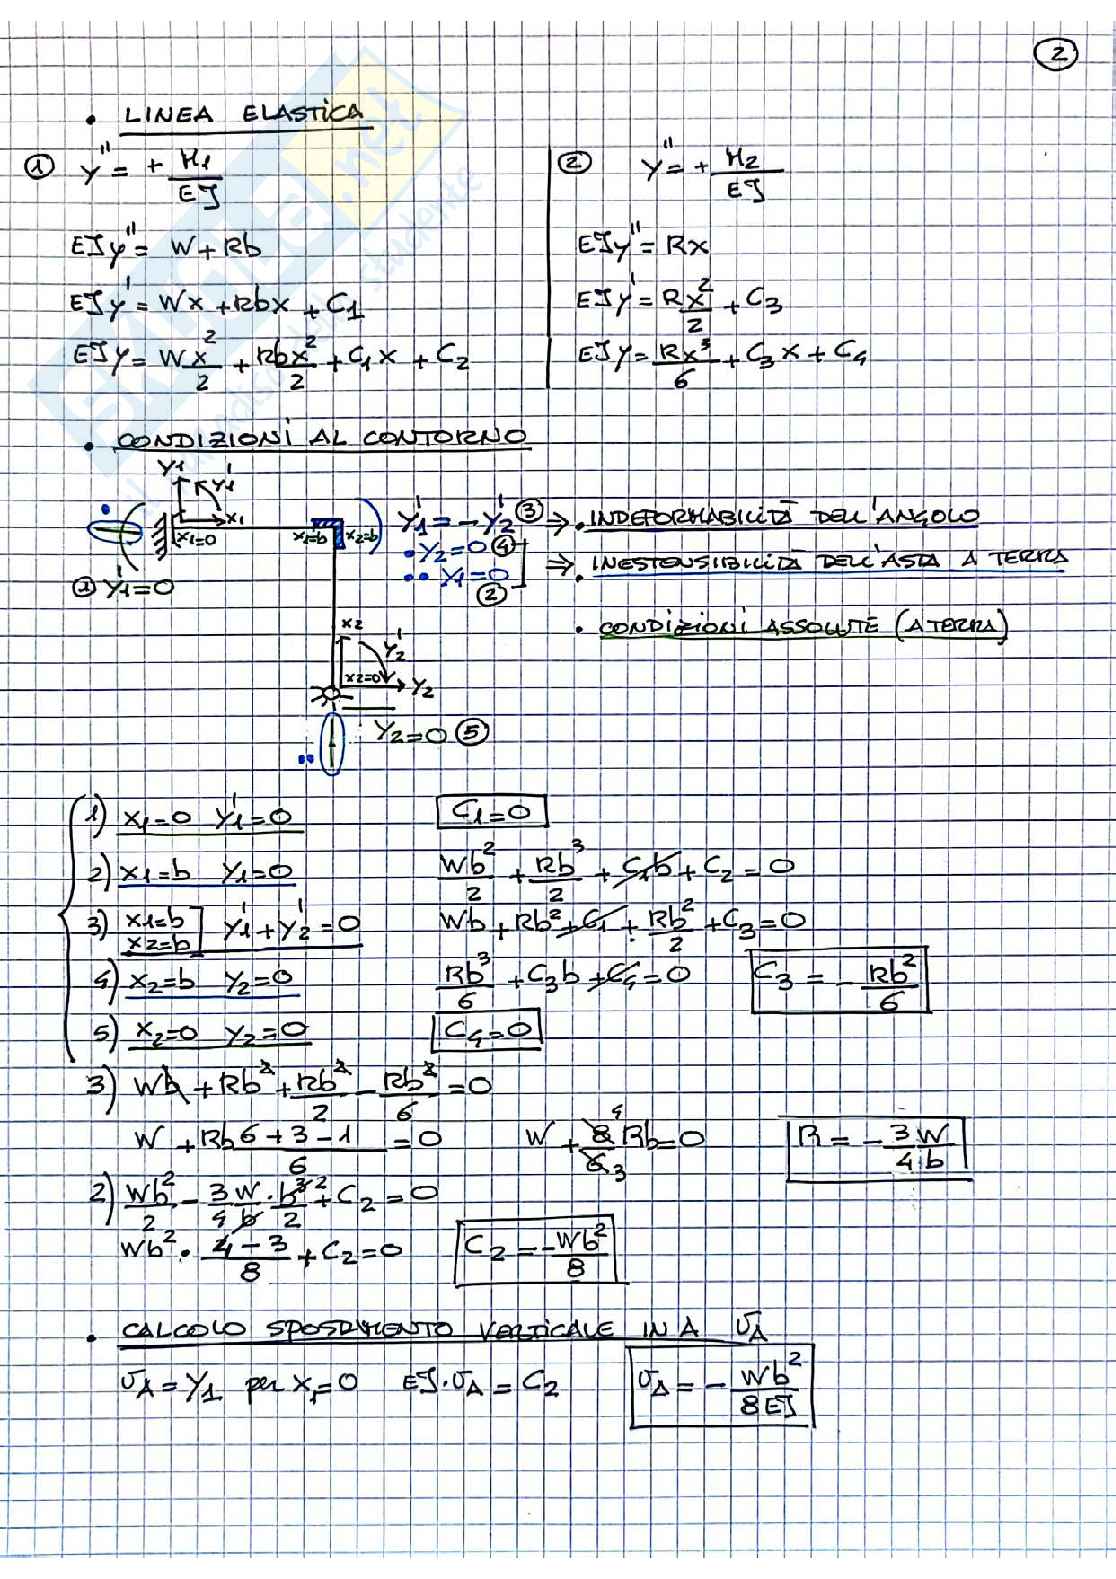 2
• LINEA ELASTICA
① y'' = + M1/EJ
EJy'' = W + Rb
EJy' = Wx + Rbx + C1
EJy = Wx²/2 + Rbx²/2 + C1x + C2
② y'' = + M2/EJ
EJy'' = Rx
EJy' = Rx²/2 + C3
EJy = Rx³/6 + C3x + C4
• CONDIZIONI AL CONTORNO
y1 y1'
x1
x1=0 x1=b x2=b
① y1'=0
y1' = -y2' ③ ⇒ • INDEFORMABILITÀ DELL'ANGOLO
• y2=0 ④
•• y1=0 ②
⇒ • INESTENSIBILITÀ DELL'ASTA A TERRA
• CONDIZIONI ASSOLUTE (A TERRA)
x2
y2'
x2=0 y2
y2=0 ⑤
1) x1=0 y1'=0 C1=0
2) x1=b y1=0 Wb²/2 + Rb³/2 + C1b + C2 = 0
3) x1=b x2=b] y1'+y2'=0 Wb + Rb² + C1 + Rb²/2 + C3 = 0
4) x2=b y2=0 Rb³/6 + C3b + C4 = 0 C3 = - Rb²/6
5) x2=0 y2=0 C4=0
3) Wb + Rb² + Rb²/2 - Rb²/6 = 0
W + Rb (6+3-1)/6 = 0 W + 8/6 Rb = 0 4 3 R = - 3/4 W/b
2) Wb²/2 - 3/4 W/b · b³/2 + C2 = 0
Wb² · (4-3)/8 + C2 = 0 C2 = - Wb²/8
• CALCOLO SPOSTAMENTO VERTICALE IN A vA
vA = y1 per x1=0 EJ·vA = C2 vA = - Wb²/8EJ